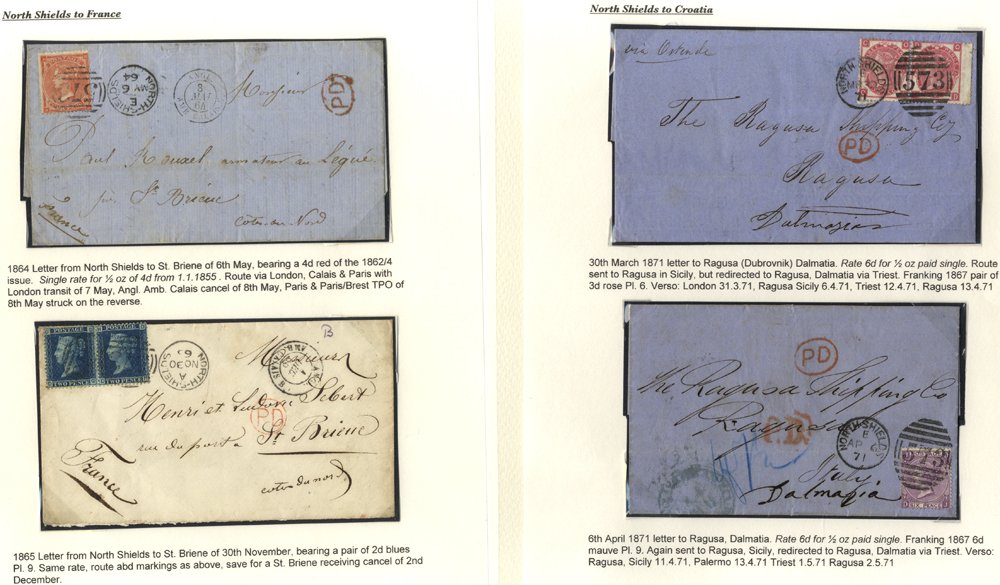 North Shields to France
NORTH-SHIELDS
E
MY 6
64
PD
Monsieur
Paul Rouxel armateur au Légué
près St Brieuc
France
cotes-du-Nord
1864 Letter from North Shields to St. Briene of 6th May, bearing a 4d red of the 1862/4
issue. Single rate for ½ oz of 4d from 1.1.1855 . Route via London, Calais & Paris with
London transit of 7 May, Angl. Amb. Calais cancel of 8th May, Paris & Paris/Brest TPO of
8th May struck on the reverse.
POSTAGE POSTAGE
TWO PENCE TWO PENCE
NORTH-SHIELDS
A
NO 30
65
B
Monsieur
Henri et Ludovic Sebert
PD
rue du port à St Brieuc
France
cotes du nord
1865 Letter from North Shields to St. Briene of 30th November, bearing a pair of 2d blues
Pl. 9. Same rate, route abd markings as above, save for a St. Briene receiving cancel of 2nd
December.
North Shields to Croatia
via Ostende
NORTH SHIELDS
71
573
The Ragusa Shipping Coy
PD
Ragusa
Dalmazias
30th March 1871 letter to Ragusa (Dubrovnik) Dalmatia. Rate 6d for ½ oz paid single. Route
sent to Ragusa in Sicily, but redirected to Ragusa, Dalmatia via Triest. Franking 1867 pair of
3d rose Pl. 6. Verso: London 31.3.71, Ragusa Sicily 6.4.71, Triest 12.4.71, Ragusa 13.4.71
PD
The Ragusa Shipping Co
Ragusa
P.D.
NORTH SHIELDS
E
AP 6
71
Italy
Dalmazia
SIX PENCE
6th April 1871 letter to Ragusa, Dalmatia. Rate 6d for ½ oz paid single. Franking 1867 6d
mauve Pl. 9. Again sent to Ragusa, Sicily, redirected to Ragusa, Dalmatia via Triest. Verso:
Ragusa, Sicily 11.4.71, Palermo 13.4.71 Triest 1.5.71 Ragusa 2.5.71